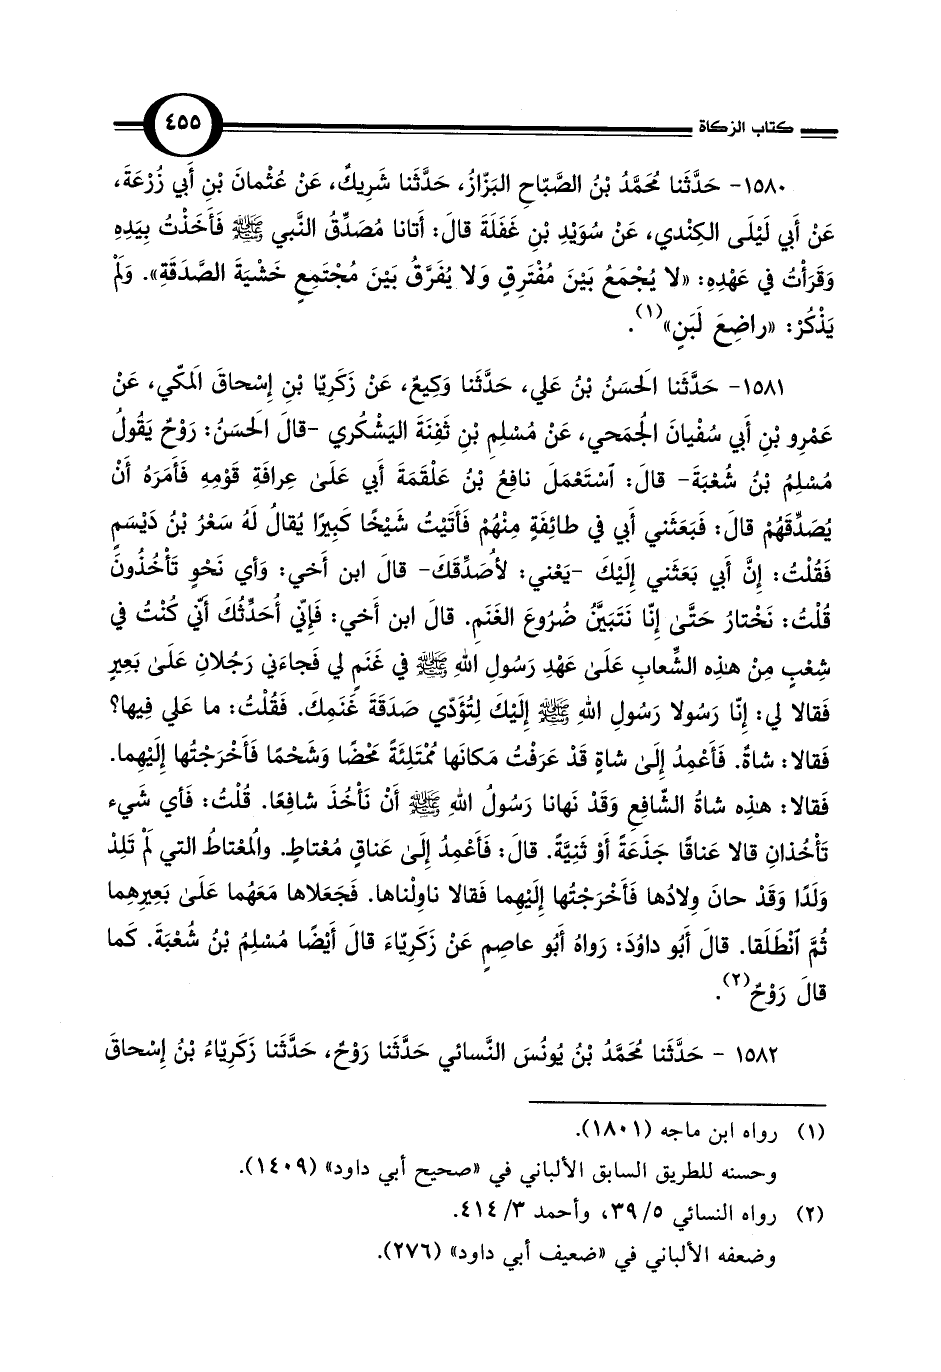 كتاب الزكاة ٤٥٥
١٥٨٠- حَدَّثَنا مُحَمَّدُ بْنُ الصَّبّاحِ البَزّازُ، حَدَّثَنا شَرِيكٌ، عَنْ عُثْمانَ بْنِ أَبي زُرْعَةَ،
عَنْ أَبي لَيْلَى الكِنْدي، عَنْ سُوَيْدِ بْنِ غَفَلَةَ قالَ: أَتانا مُصَدِّقُ النَّبي ﷺ فَأَخَذْتُ بِيَدِهِ
وَقَرَأْتُ في عَهْدِهِ: «لا يُجْمَعُ بَيْنَ مُفْتَرِقٍ وَلا يُفَرَّقُ بَيْنَ مُجْتَمِعٍ خَشْيَةَ الصَّدَقَةِ». وَلَمْ
يَذْكُرْ: «راضِعَ لَبَنٍ»(١).
١٥٨١- حَدَّثَنا الحَسَنُ بْنُ عَلي، حَدَّثَنا وَكِيعٌ، عَنْ زَكَرِيّا بْنِ إِسْحاقَ المَكّي، عَنْ
عَمْرِو بْنِ أَبي سُفْيانَ الجُمَحي، عَنْ مُسْلِمِ بْنِ ثَفِنَةَ اليَشْكُري -قالَ الحَسَنُ: رَوْحٌ يَقُولُ
مُسْلِمُ بْنُ شُعْبَةَ- قالَ: ٱسْتَعْمَلَ نافِعُ بْنُ عَلْقَمَةَ أَبي عَلَىٰ عِرافَةِ قَوْمِهِ فَأَمَرَهُ أَنْ
يُصَدِّقَهُمْ قالَ: فَبَعَثَني أَبي في طائِفَةٍ مِنْهُمْ فَأَتَيْتُ شَيْخًا كَبِيرًا يُقالُ لَهُ سَعْرُ بْنُ دَيْسَمٍ
فَقُلْتُ: إِنَّ أَبي بَعَثَني إِلَيْكَ -يَعْني: لأُصَدِّقَكَ- قالَ ابن أَخي: وَأي نَحْوٍ تَأْخُذُونَ
قُلْتُ: نَخْتارُ حَتَّىٰ إِنّا نَتَبَيَّنُ ضُرُوعَ الغَنَمِ. قالَ ابن أَخي: فَإِنّي أُحَدِّثُكَ أَنّي كُنْتُ في
شِعْبٍ مِنْ هٰذِه الشِّعابِ عَلَىٰ عَهْدِ رَسُولِ اللهِ ﷺ في غَنَمٍ لي فَجاءَني رَجُلانِ عَلَىٰ بَعِيرٍ
فَقالا لي: إِنّا رَسُولا رَسُولِ اللهِ ﷺ إِلَيْكَ لِتُؤَدّي صَدَقَةَ غَنَمِكَ. فَقُلْتُ: ما عَلي فِيها؟
فَقالا: شاةٌ. فَأَعْمِدُ إِلَىٰ شاةٍ قَدْ عَرَفْتُ مَكانَها مُمْتَلِئَةً مَحْضًا وَشَحْمًا فَأَخْرَجْتُها إِلَيْهِما.
فَقالا: هٰذِه شاةُ الشّافِعِ وَقَدْ نَهانا رَسُولُ اللهِ ﷺ أَنْ نَأْخُذَ شافِعًا. قُلْتُ: فَأي شَيء
تَأْخُذانِ قالا عَناقًا جَذَعَةً أَوْ ثَنِيَّةً. قالَ: فَأَعْمِدُ إِلَىٰ عَناقٍ مُعْتاطٍ. والمُعْتاطُ التي لَمْ تَلِدْ
وَلَدًا وَقَدْ حانَ وِلادُها فَأَخْرَجْتُها إِلَيْهِما فَقالا ناوِلْناها. فَجَعَلاها مَعَهُما عَلَىٰ بَعِيرِهِما
ثُمَّ ٱنْطَلَقا. قالَ أَبُو داوُدَ: رَواهُ أَبُو عاصِمٍ عَنْ زَكَرِيّاءَ قالَ أَيْضًا مُسْلِمُ بْنُ شُعْبَةَ. كَما
قالَ رَوْحٌ(٢).
١٥٨٢ - حَدَّثَنا مُحَمَّدُ بْنُ يُونُسَ النَّسائي حَدَّثَنا رَوْحٌ، حَدَّثَنا زَكَرِيّاءُ بْنُ إِسْحاقَ
(١) رواه ابن ماجه (١٨٠١).
وحسنه للطريق السابق الألباني في «صحيح أبي داود» (١٤٠٩).
(٢) رواه النسائي ٥/ ٣٩، وأحمد ٣/ ٤١٤.
وضعفه الألباني في «ضعيف أبي داود» (٢٧٦).